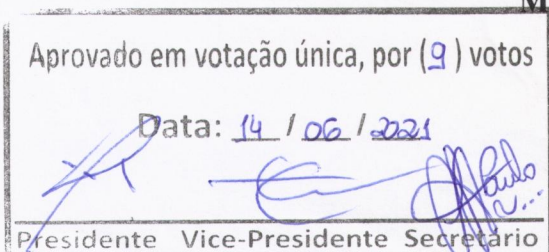 M
Aprovado em votação única, por (9) votos
Data: 14 / 06 / 2021
Paulo
Presidente Vice-Presidente Secretário